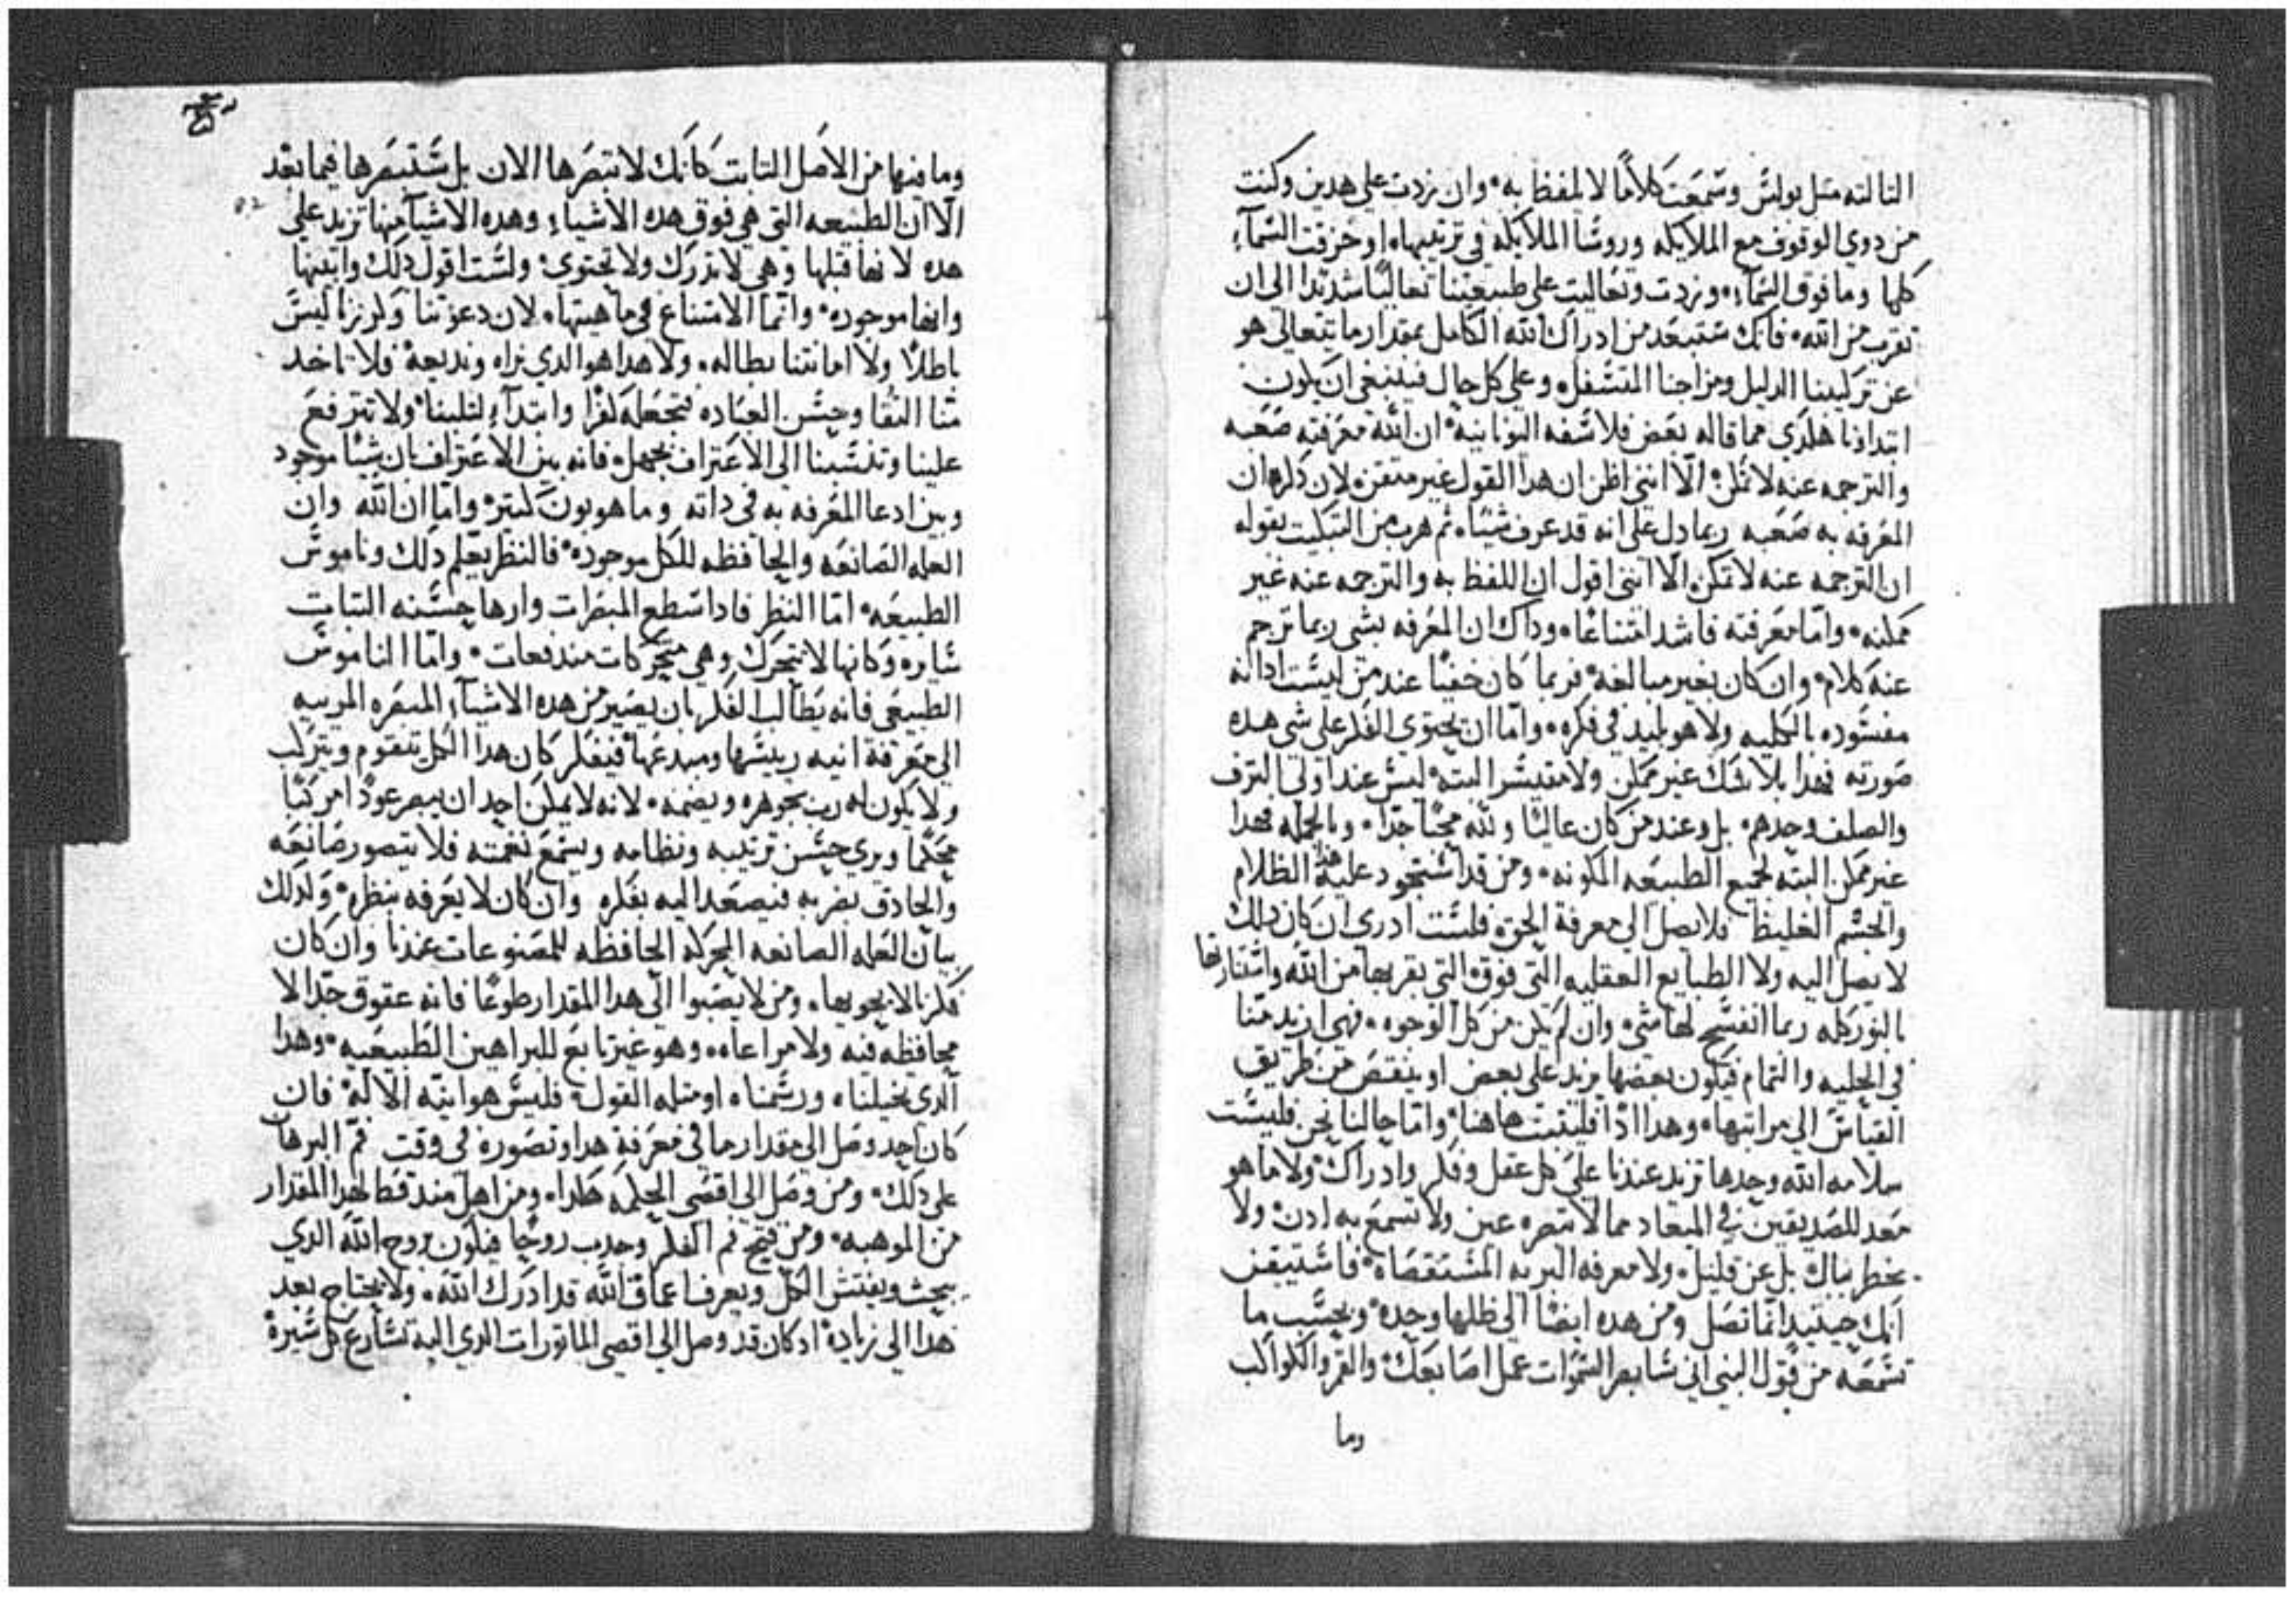 التالته متل بولس وسمعت كلامًا لا يلفظ به وان زدت على هدين وكنت
من دوي الوقوف مع الملايكه وروسا الملايكه في ترتيبها او خرقت السمآء
كلها وما فوق السمآء وزدت وتعاليت على طبيعتنا تعاليًا شديدًا الى ان
تقرب من الله فانك ستبعد من ادراك الله الكامل بمقدار ما يتعالى هو
عن تركيبنا الدليل ومزاجنا المتسفل وعلى كل حال فينبغى ان يكون
ابتداونا هكدي مما قاله بعض فلاسفه اليونانيه ان الله معرفته صعبه
والترجمه عنه لا تمكن الّا انني اظن ان هدا القول غير متقن لان دكره ان
المعرفه به صعبه ربما دل على انه قد عرف شيًا تم هرب من التبكيت بقوله
ان الترجمه عنه لا تمكن الّا انني اقول ان اللفظ به والترجمه عنه غير
ممكنه وامّا معرفته فاشد امتناعًا وداك ان المعرفه بشي ربما ترجم
عنه كلام وان كان بغير مبالغه فربما كان خفيًا عند من ليست ادانه
مفسوده بالكليه ولا هو بليد في فكره وامّا ان يحتوى الفكر على شي هده
صورته فهدا بلا شك غير ممكن ولا متيسر البته ليس عند اولى الترف
والصلف وحدهم بل وعند من كان عاليًا ولله محبًا جدًا وبالجمله فهدا
غير ممكن البته لجميع الطبيعه المكونه ومن قد استحود عليه هدا الظلام
والجسم الغليظ فلا يصل الى معرفة الحق فلست ادرى ان كان دلك
لا يصل اليه ولا الطبايع العقليه التى فوق التي بقربها من الله واستنارتها
بالنور كله ربما انفسح لها شي وان لم يكن من كل الوجوه فهي ازيد منّا
في الجليه والتمام فيكون بعضها يزيد على بعض او ينقص من طريق
القياس الى مراتبها وهدا ادًا فليتبت هاهنا وامّا حالنا نحن فليست
سلامه الله وحدها تزيد عندنا على كل عقل وفكر وادراك ولا ما هو
معد للصديقين في الميعاد مما لا تبصره عين ولا تسمع به ادن ولا
يخطر ببالك بل عن قليل ولا معرفه البريه المستقصاه فاستيقن
انك حينيد انما تصل ومن هده ايضًا الى ظلها وحده وبحسب ما
تسمعه من قول النبي اني سابصر السموات عمل اصابعك والقمر والكواكب
وما
وما فيها من الاصل التابت كانك لا تبصرها الان بل ستبصرها فيما بعد
الّا ان الطبيعه التي هي فوق هده الاشياء وهده الاشيآ منها تزيد على
هده لانها قبلها وهي لا تدرك ولا تحتوي ولست اقول دلك وانيتها
وانها موجوده وانما الامتناع في ماهيتها لان دعوتنا وكرزنا ليس
باطلًا ولا امانتنا بطاله ولا هدا هو الدي نراه ونديعه فلا تاخد
منا النقا وحسن العباده فتجعله كفرًا وابتدآء لتلبنا ولا تترفع
علينا وتنسبنا الى الاعتراف بجهل فانه بين الاعتراف بان شيًا موجود
وبين ادعا المعرفه به في داته وما هو بون كبير وامّا ان الله وان
العله الصانعه والحافظه للكل موجوده فالنظر يعلم دلك وناموس
الطبيعه امّا النظر فادا سطع المبصرات وارها حسنه التبات
سايره وكانها لا تتحرك وهي متحركات مندفعات وامّا الناموس
الطبيعي فانه يطالب الفكر بان يصير من هده الاشيآء المبصره المرتبه
الى معرفة انيه رييسها ومبدعها فيفكر كان هدا الكل يتقوم ويتركب
ولا يكون له رب يجوهره ويضمه لانه لا يمكن احد ان يبصر عودًا مركبًا
محكمًا ويرى حسن ترتيبه ونظامه ويسمع نغمته فلا يتصور صانعه
والحادق بضربه فيصعد اليه بفكره وان كان لا يعرفه بنظره وكدلك
بيان العله الصانعه المحركه الحافظه للمصنوعات عندنا وان كان
فكرنا لا يحويها ومن لا يصبوا الى هدا المقدار طوعًا فانه عقوق جدًا لا
محافظه فيه ولا مراعاه وهو غير تابع للبراهين الطبيعيه وهدا
الدي تخيلناه ورسمناه او متله القول فليس هو انيه الاله فان
كان احد وصل الى مقدار ما في معرفة هدا وتصوره في وقت فمّ البرهان
على دلك ومن وصل الى اقصى الحكمه هكدا ومن اهل مند قط لهدا المقدار
من الموهبه ومن فتح فم الفكر وجدب روحًا فيكون بروح الله الدي
يبحت ويفتش الكل ويعرف اعماق الله قد ادرك الله ولا يحتاج بعد
هدا الى زيادة اد كان قد وصل الى اقصى الماتورات الدي اليه تسارع كل سيرة